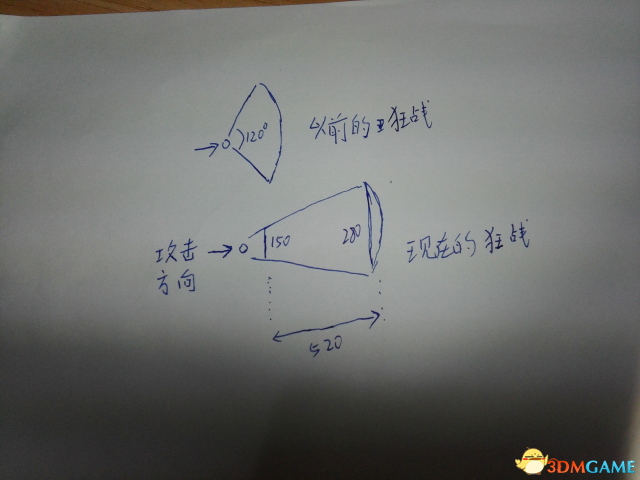 120°
以前的狂战
攻击
方向
150
280
现在的狂战
520
3DMGAME